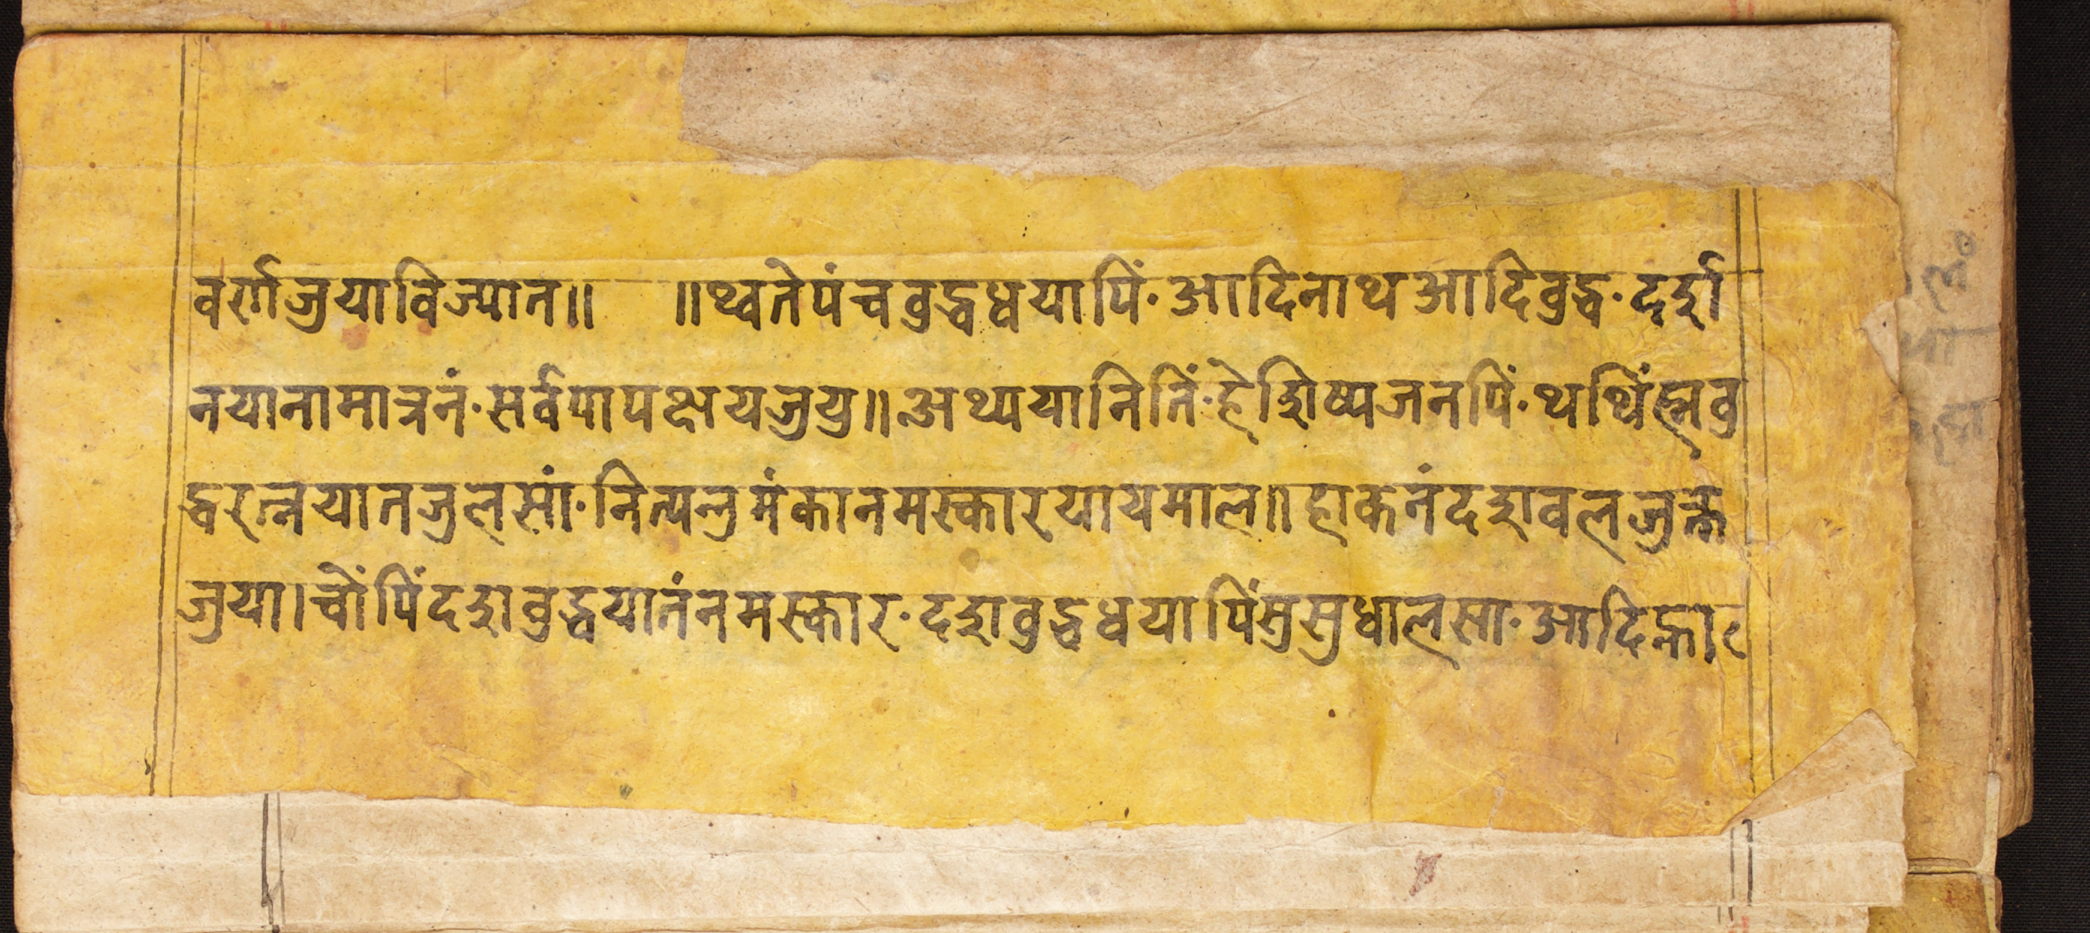 वर्णजुयाविज्यात॥ ॥थ्वतेपंचबुद्धध्वयापिं·आदिनाथआदिबुद्ध·दर्श
नयानामात्रनं·सर्वपापक्षयजुयु॥अथ्ययानितिं·हेशिष्यजनपिं·थथिंह्मबु
द्धरत्नयातजुलसां·नित्यलुमंकानमस्कारयायमाल॥हाकनंदशवलजुक
जुया।चोंपिंदशबुद्धयातंनमस्कार·दशबुद्धध्वयापिंसुसुधालसा·आदि